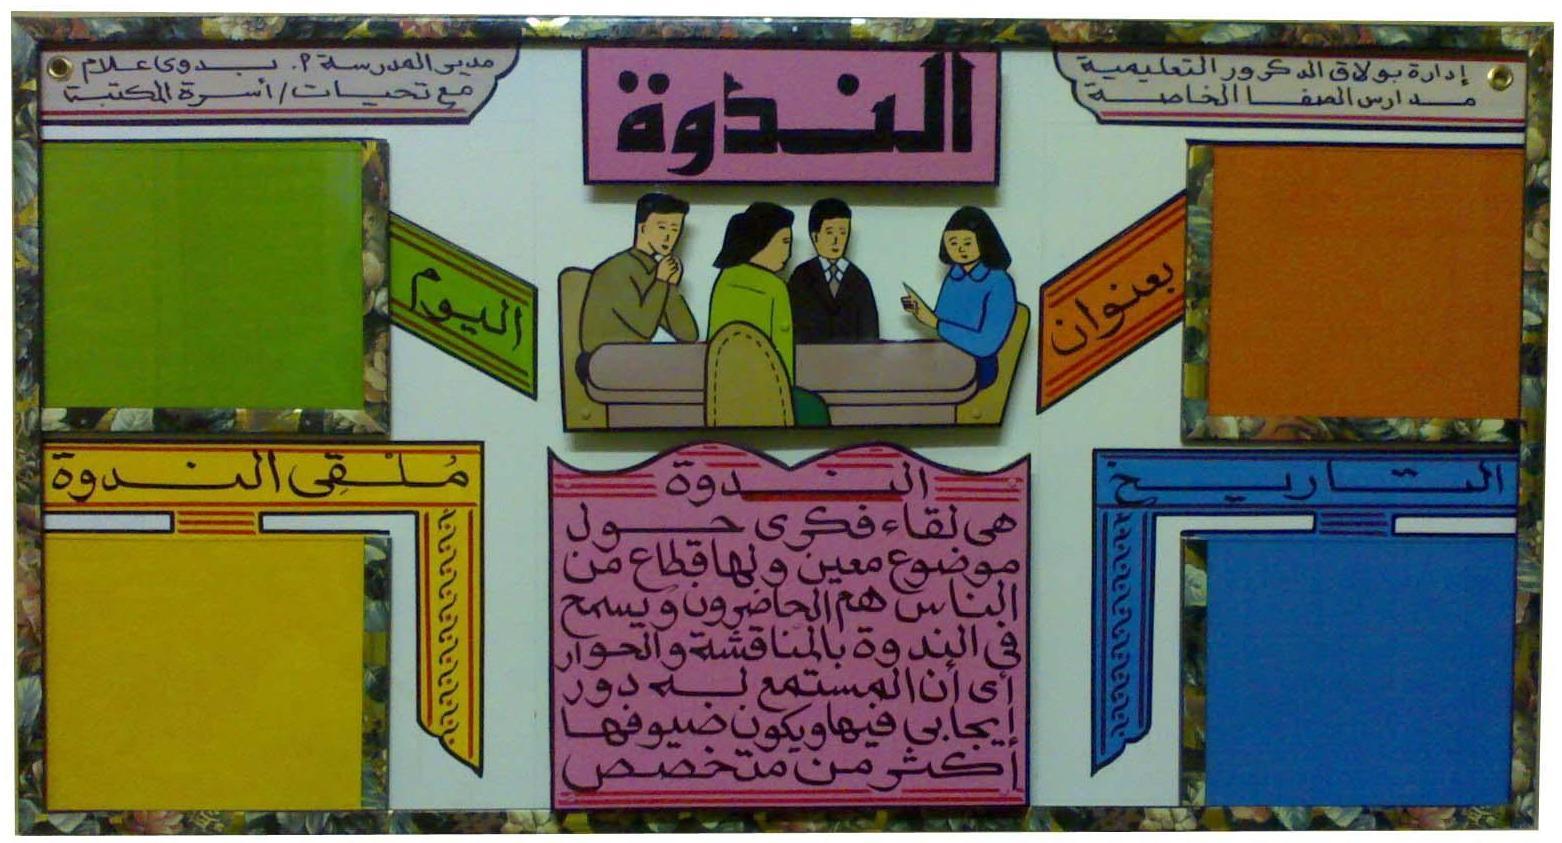 إدارة بولاق الدكرور التعليمية
مدارس الصفا الخاصة
الندوة
مدير المدرسة م. بدوى علام
مع تحيات/أسرة المكتبة
بعنوان
اليوم
التاريخ
مُلْتقِى الندوة
الندوة
هى لقاء فكرى حول
موضوع معين ولها قطاع من
الناس هم الحاضرون ويسمح
فى الندوة بالمناقشة والحوار
أى أن المستمع له دور
إيجابى فيها ويكون ضيوفها
أكثر من متخصص